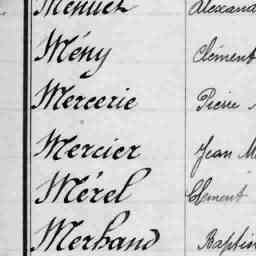 Menuet Alexand
Mény Clément
Mercerie Pierre
Mercier Jean M
Mérel Clément
Merhand Baptis